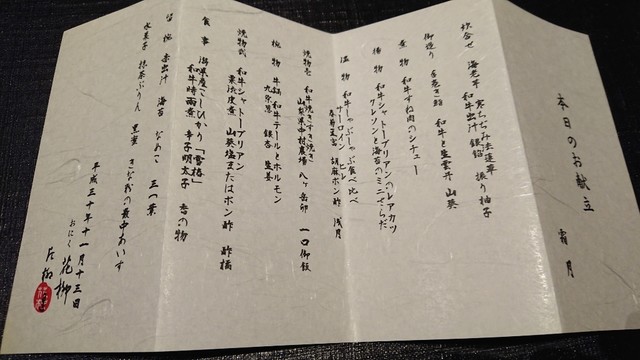 本日のお献立　霜月
炊合せ　海老芋　寒ちぢみ法蓮草
和牛出汁　銀餡　振り柚子
御造り　手巻き鮨　和牛と生雲丹　山葵
煮物　和牛すね肉のシチュー
揚物　和牛シャトーブリアンのレアカツ
クレソンと海苔のミニさらだ
温物　和牛しゃぶしゃぶ食べ比べ
サーロイン　ヒレ
胡麻ポン酢　浅月
焼物壱　和牛焼きすき焼き
山梨県中村農場　八ヶ岳卵　一口御飯
椀物　牛鍋　和牛テールとホルモン
九条葱　銀杏　生姜
焼物弐　和牛シャトーブリアン
粟渋皮煮　山葵塩またはポン酢　酢橘
食事　潟県産こしひかり「雪椿」
和牛時雨煮　辛子明太子　香の物
留椀　赤出汁　海苔　なめこ　三つ葉
水菓子　抹茶ぷりん　黒蜜　きな粉の最中あいす
平成三十年十一月十三日
おにく　花柳